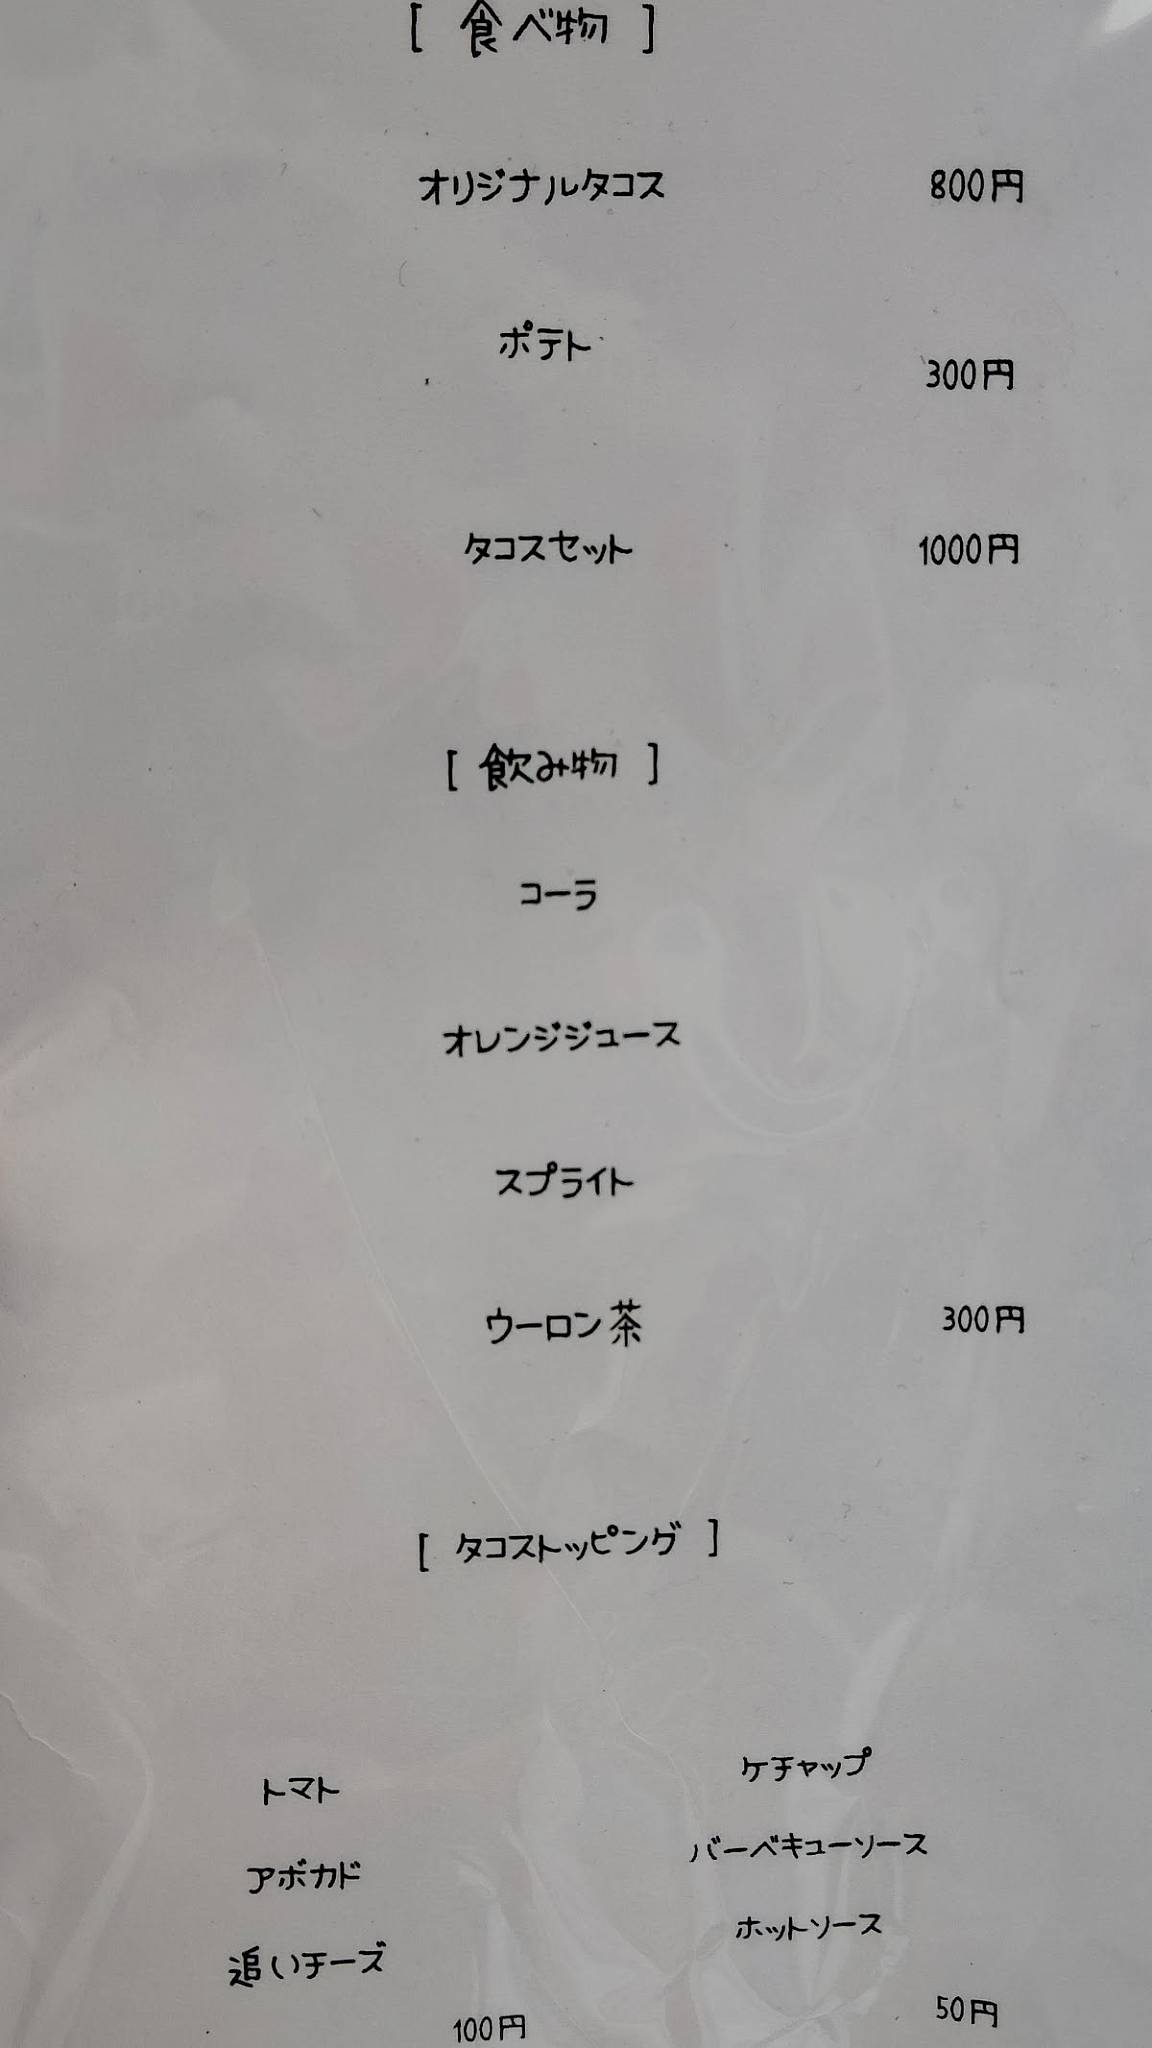 [ 食べ物 ]
オリジナルタコス 800円
ポテト 300円
タコスセット 1000円
[ 飲み物 ]
コーラ
オレンジジュース
スプライト
ウーロン茶 300円
[ タコストッピング ]
トマト
アボカド
追いチーズ
100円
ケチャップ
バーベキューソース
ホットソース
50円